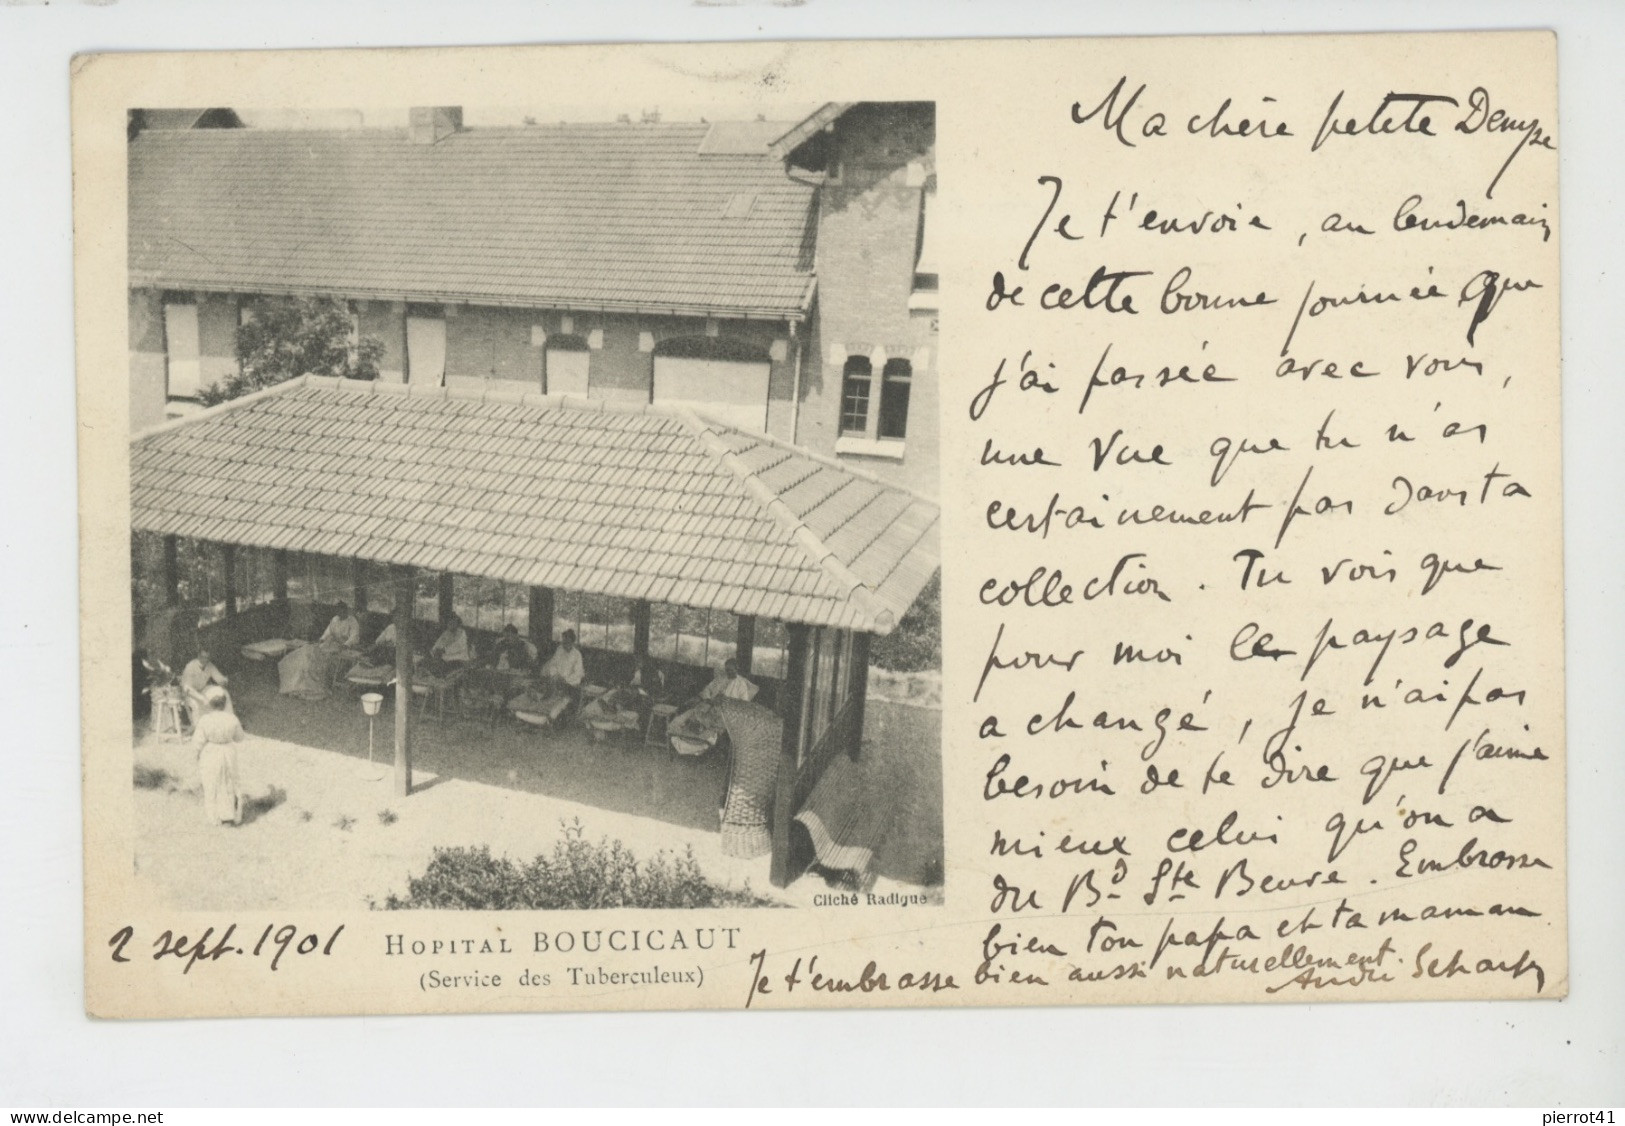 Ma chère petite Denyse
Je t'envoie, au lendemain
de cette bonne journée que
j'ai passée avec vous,
une vue que tu n'as
certainement pas dans ta
collection. Tu vois que
pour moi le paysage
a changé, je n'ai pas
besoin de te dire que j'aime
mieux celui qu'on a
du Bd Ste Beuve. Embrasse
bien ton papa et ta maman
Je t'embrasse bien aussi naturellement.
André
Cliché Radigue
2 sept. 1901
HOPITAL BOUCICAUT
(Service des Tuberculeux)
www.delcampe.net
pierrot41